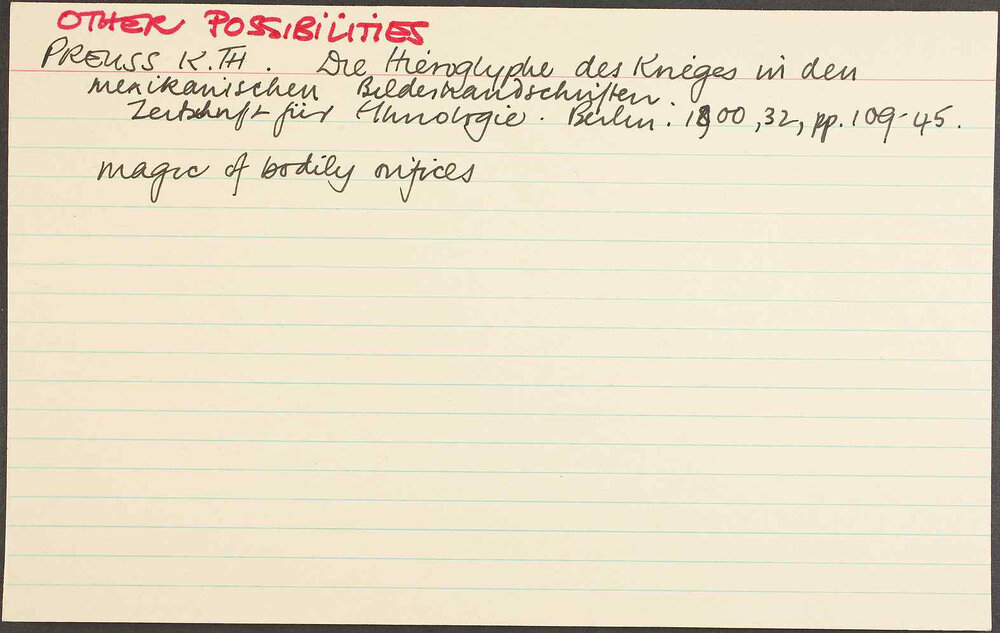 OTHER POSSIBILITIES
PREUSS K.TH. Die Hieroglyphe des Krieges in den
mexikanischen Bilderhandschriften.
Zeitschrift für Ethnologie. Berlin. 1900, 32, pp. 109-45.
magic of bodily orifices